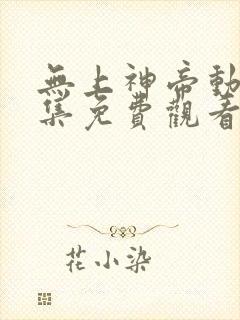 無上神帝動
集免費觀看
花小染